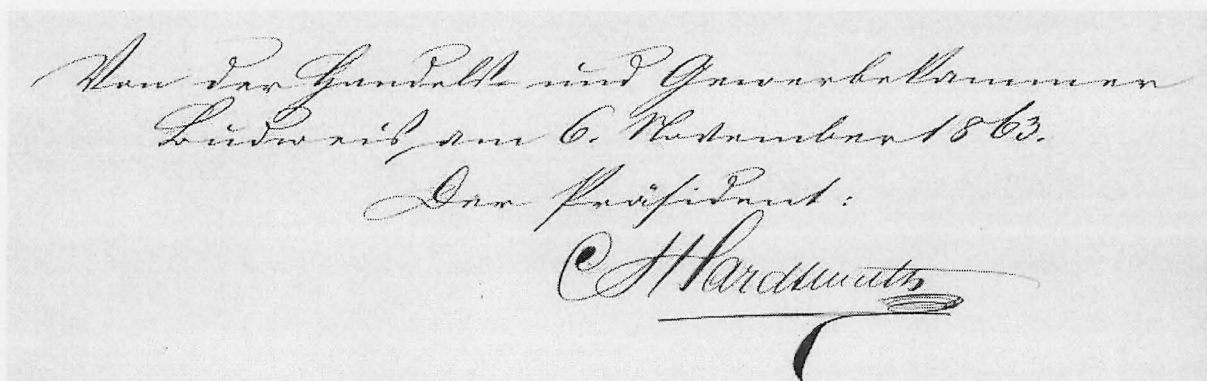 Von der Handels- und Gewerbekammer
Budweis am 6. November 1863.
Der Präsident:
C Hardtmuth